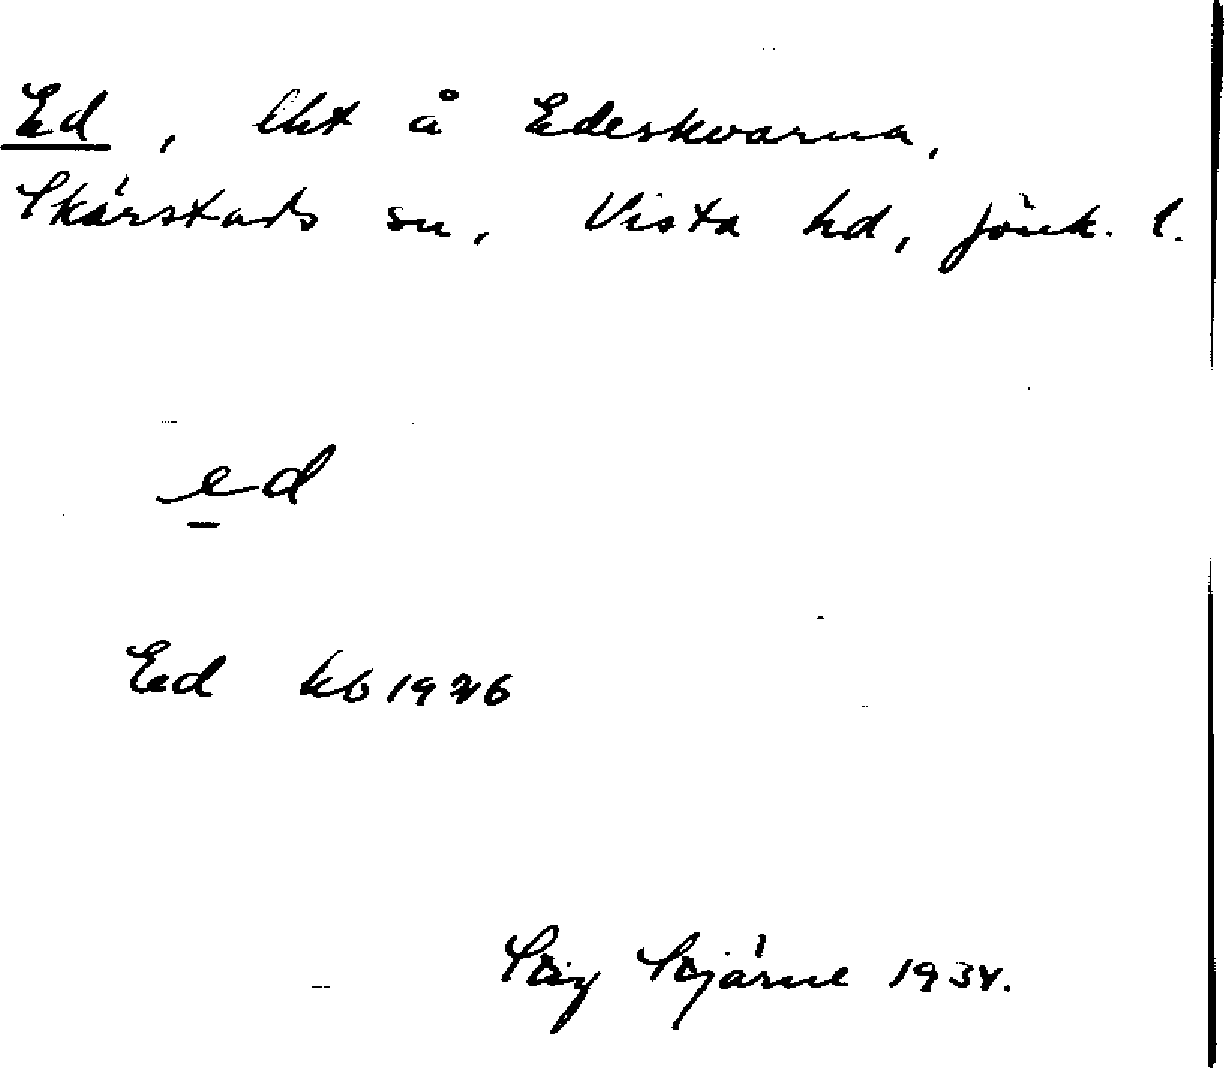 Ed, lht å Edeskvarna,
Skärstads sn, Vista hd, Jönk. l.
ed
Ed kb 1926
Stig Stjärne 1934.